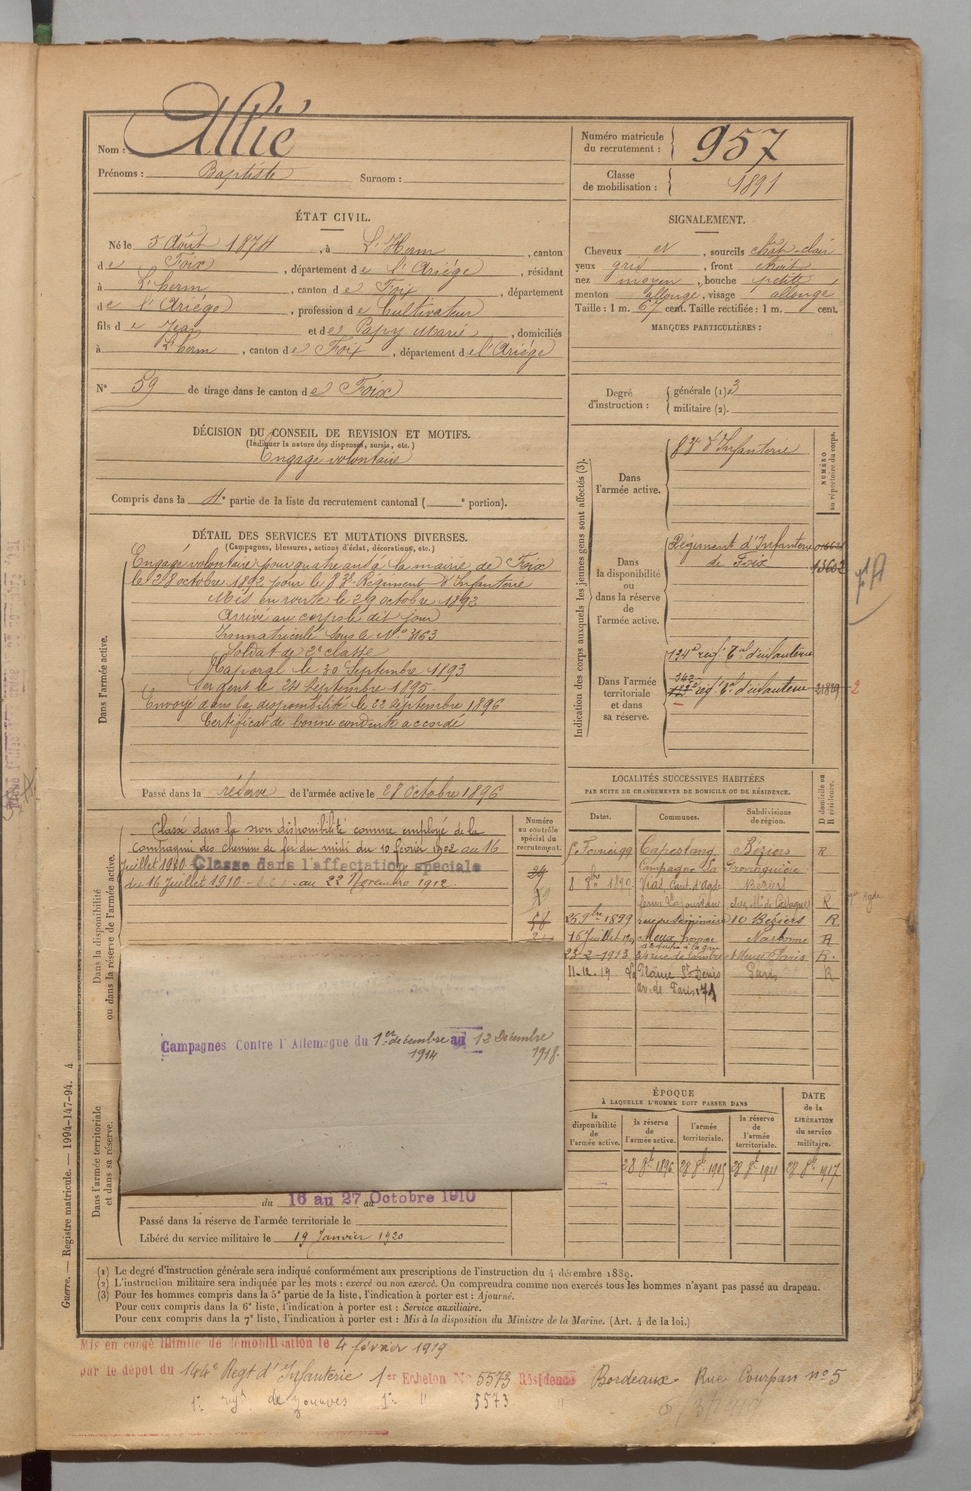 Nom : Allié
Prénoms : Baptiste Surnom :
Numéro matricule du recrutement : 957
Classe de mobilisation : 1891
ÉTAT CIVIL.
Né le 5 Août 1874, à L'Herm, canton
de Foix, département de l'Ariége, résidant
à L'herm, canton de Foix, département
de l'Ariége, profession de Cultivateur
fils de Jean et de Papy Marie, domiciliés
à L'herm, canton de Foix, département de l'Ariége
N° 59 de tirage dans le canton de Foix
SIGNALEMENT.
Cheveux et, sourcils chât-clair
yeux gris, front étroit
nez moyen, bouche petite
menton allongé, visage allongé
Taille : 1 m. 67 cent. Taille rectifiée : 1 m. cent.
MARQUES PARTICULIÈRES :
Degré d'instruction :
générale (1) 3
militaire (2).
DÉCISION DU CONSEIL DE REVISION ET MOTIFS.
(Indiquer la nature des dispenses, sursis, etc.)
Engagé volontaire
Compris dans la 4e partie de la liste du recrutement cantonal ( e portion).
DÉTAIL DES SERVICES ET MUTATIONS DIVERSES.
(Campagnes, blessures, actions d'éclat, décorations, etc.)
Dans l'armée active.
Engagé volontaire pour quatre ans à la mairie de Foix
le 28 octobre 1892 pour le 83e Régiment d'Infanterie
Mis en route le 29 octobre 1892
Arrivé au corps le dit jour
Immatriculé sous le N° 3163
Soldat de 2e classe
Caporal le 30 Septembre 1893
Sergent le 24 Septembre 1895
Envoyé dans la disponibilité le 22 Septembre 1896
Certificat de bonne conduite accordé
Passé dans la réserve de l'armée active le 28 Octobre 1896
Indication des corps auxquels les jeunes gens sont affectés (3).
NUMÉRO au répertoire du corps.
Dans l'armée active.
83e d'Infanterie
Dans la disponibilité ou dans la réserve de l'armée active.
Régiment d'Infanterie
de Foix
Dans l'armée territoriale et dans sa réserve.
134e régt Tal d'infanterie
régt Tal d'infanterie
Dans la disponibilité ou dans la réserve de l'armée active.
Classé dans la non disponibilité comme employé de la
Compagnie des Chemins de fer du midi du 10 février 1902 au 16
Juillet 1910 Classé dans l'affectation spéciale
du 16 Juillet 1910 au 22 Novembre 1912.
Numéro au contrôle spécial du recrutement.
LOCALITÉS SUCCESSIVES HABITÉES
PAR SUITE DE CHANGEMENTS DE DOMICILE OU DE RÉSIDENCE.
Dates. Communes. Subdivisions de région. D domicile ou R résidence.
Capestang Béziers R
Béziers
25 9bre 1899 rue du Séminaire 10 Béziers R
16 Juillet Narbonne R
23-2-1913 Paris R.
11-12-19 Plaine St Denis Paris R
av. de Paris 171
Campagnes Contre l'Allemagne du 1er décembre 1914 au 12 Décembre 1918.
Dans l'armée territoriale et dans sa réserve.
du 16 au 27 Octobre 1910
Passé dans la réserve de l'armée territoriale le
Libéré du service militaire le 19 Janvier 1920
ÉPOQUE
À LAQUELLE L'HOMME DOIT PASSER DANS
la disponibilité de l'armée active. la réserve de l'armée active. l'armée territoriale. la réserve de l'armée territoriale. DATE de la LIBÉRATION du service militaire.
28 8bre 1896 28 8bre 1905 28 8bre 1911 28 8bre 1917
(1) Le degré d'instruction générale sera indiqué conformément aux prescriptions de l'instruction du 4 décembre 1889.
(2) L'instruction militaire sera indiquée par les mots : exercé ou non exercé. On comprendra comme non exercés tous les hommes n'ayant pas passé au drapeau.
(3) Pour les hommes compris dans la 5e partie de la liste, l'indication à porter est : Ajourné.
Pour ceux compris dans la 6e liste, l'indication à porter est : Service auxiliaire.
Pour ceux compris dans la 7e liste, l'indication à porter est : Mis à la disposition du Ministre de la Marine. (Art. 4 de la loi.)
Guerre. — Registre matricule. — 1994-147-94. 4
Mis en congé illimité de démobilisation le 4 février 1919
par le dépôt du 144e Regt d'Infanterie 1er Echelon N° 5573 Résidence Bordeaux Rue Courpan n° 5
de zouaves 1er " 5573 "